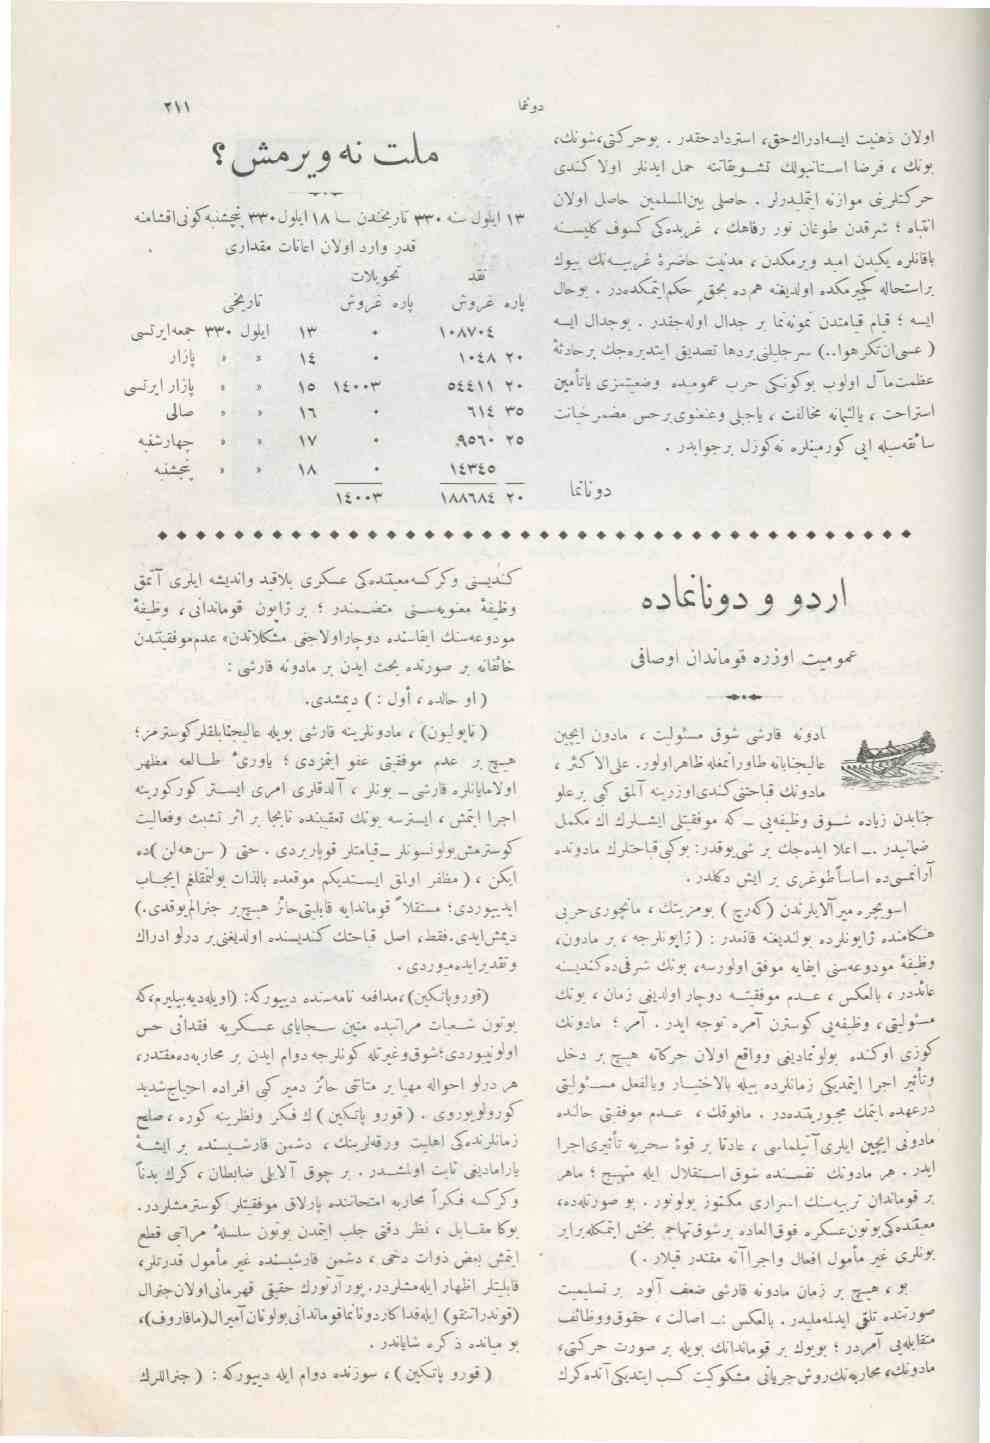 دونانما
٢١١
اولان ذهنيت ايسه ادراك حق، استرداد حقدر . بوحركتى، شونك،
بونك ، فرضا استانبولك تشويقاتنه حمل ايدنلر اولا كندى
حركتلرينى موازنه ايتمليدرلر . حاصلى بين المسلمين حاصل اولان
انتباه ؛ شرقدن طوغان نور رفاهك ، غربده كى كسوف كليسنه
باقانلره يكيدن اميد ويرمكدن ، مدنيت حاضرۀ غربيه نك بيوك
بر استحاله كچيرمكده اولديغنه هم ده بحق حكم ايتمكده در . بوحال
ايسه ؛ قيام قيامتدن نمونه نما بر جدال اوله جقدر . بوجدال ايسه
( عسى ان تكرهوا..) سر جليلنى بردها تصديق ايتديره جك برحادثۀ
عظمت مآل اولوب بوكونكى حرب عموميده وضعيتمزى ياتأمين
استراحت ، يالئيمانه مخالفت ، ياجبلى وعنعنوى برحس مضمر خيانت
سائقه سيله ايى كورمينلره نه كوزل برجوابدر .
دونانما
ملت نه ويرمش؟
١٣ ايلول سنه ٣٣٠ تاريخندن ١٨ ايلول ٣٣٠ پنجشنبه كونى اقشامنه
قدر وارد اولان اعانات مقدارى
نقد تحويلات
پاره غروش پاره غروش تاريخى
١٠٨٧٠٤ ٠ ١٣ ايلول ٣٣٠ جمعه ايرتسى
٢٠ ١٠٤٨ ٠ ١٤ » » پازار
٢٠ ٥٤٤١١ ١٤٠٠٣ ١٥ » » پازار ايرتسى
٣٥ ٦١٤ ٠ ١٦ » » صالى
٢٥ ٩٥٦٠ ٠ ١٧ » » چهارشنبه
١٤٣٤٥ ٠ ١٨ » » پنجشنبه
٢٠ ١٨٨٦٨٤ ١٤٠٠٣
اردو و دونانماده
عموميت اوزره قوماندان اوصافى
مادونه قارشى شوق مسئوليت ، مادون ايچين
عاليجنابانه طاورانمغله ظاهر اولور. على الاكثر ،
مادونك قباحتنى كندى اوزرينه آلمق كبى برعلو
جنابدن زياده شوق وظيفه يى ــ كه موفقيتلى ايشلرك اك مكمل
ضمانيدر ــ اعلا ايده جك بر شى يوقدر: بوكبى قباحتلرك مادونده
آرانمسى ده اساساً طوغرى بر ايش دكلدر .
اسويچره ميرآلايلرندن ( كه رچ ) بومزيتك ، مانچورى حربى
هنكامنده ژاپونلرده بولنديغنه قانعدر : ( ژاپونلرجه ، بر مادون،
وظيفۀ مودوعه سنى ايفايه موفق اولورسه، بونك شرفى ده كندينه
عائددر ، بالعكس ، عدم موفقيته دوچار اولديغى زمان ، بونك
مسئوليتى، وظيفه يى كوسترن آمره توجه ايدر . آمر ؛ مادونك
كوزى اوكنده بولونماديغى وواقع اولان حركاته هيچ بر دخل
وتأثير اجرا ايتمديكى زمانلرده بيله بالاختيار وبالفعل مسئوليتى
درعهده ايتمك مجبوريتنده در . مافوقك ، عدم موفقيتى حالنده
مادونى ايچين ايلرى آتيلماسى ، عادتا بر قوۀ سحريه تأثيرى اجرا
ايدر . هر مادونك نفسنده شوق استقلال ايله منهيج ؛ ماهر
بر قوماندان تربيه سنك اسرارى مكنوز بولونور . بو صورتله ده،
معيتنده كى بوتون عسكره فوق العاده برشوق تهاجم بخش ايتمكله برابر
بونلرى غير مأمول افعال و اجراآته مقتدر قيلار . )
بو ، هيچ بر زمان مادونه قارشى ضعف آلود بر تسليميت
صورتنده تلقى ايدلمه مليدر . بالعكس :ــ اصالت ، حقوق ووظائف
متقابله يى آمردر ؛ بويوك بر قوماندانك بويله بر صورت حركتى،
مادونك، محاربه نك روش جريانى مشكوكيت كسب ايتديكى آنده كرك
كنديسنى وكركسه معيتنده كى عسكرى بلاقيد وانديشه ايلرى آتمق
وظيفۀ معنويه سنى متضمندر ؛ بر ژاپون قوماندانى ، وظيفۀ
مودوعه سنك ايفاسنده دوچار اولاجغى مشكلاتدن، عدم موفقيتندن
خائفانه بر صورتده بحث ايدن بر مادونه قارشى :
( او حالده ، أول : ) ديمشدى.
( ناپوليون ) ، مادونلرينه قارشى بويله عاليجنابلقلر كوسترمز؛
هيچ بر عدم موفقيتى عفو ايتمزدى ؛ ياورى ٔ طالعه مظهر
اولامايانلره قارشى ــ بونلر ، آلدقلرى امرى ايستر كوركورينه
اجرا ايتمش ، ايسترسه بونك تعقيبنده نابجا بر اثر تشبث وفعاليت
كوسترمش بولونسونلر ــ قيامتلر قوپاريردى . حتى ( سن هه لن )ده
ايكن ، ( مظفر اولمق ايستديكم موقعده بالذات بولنمقلغم ايجاب
ايدييوردى؛ مستقلاً قوماندايه قابليتى حائز هيچ بر جنرالم يوقدى.)
ديمش ايدى. فقط، اصل قباحتك كنديسنده اولديغنى بر درلو ادراك
وتقدير ايده ميوردى .
(قوروپاتكين) ، مدافعه نامه سنده دييوركه: (اويله ديه بيليرم، كه
بوتون شعبات مراتبده متين سجاياى عسكريه فقدانى حس
اولونييوردى؛ شوق وغيرتله كونلرجه دوام ايدن بر محاربه ده مقتدر،
هر درلو احواله مهيا بر متانتى حائز دمير كبى افراده احتياج شديد
كورولويوروى . ( قورو پاتكين ) ك فكر ونظرينه كوره ، صلح
زمانلرنده كى اهليت ورقه لرينك ، دشمن قارشيسنده بر ايشه
ياراماديغى ثابت اولمشدر . بر چوق آلايلى ضابطان ، كرك بدناً
وكركسه فكراً محاربه امتحاننده پارلاق موفقيتلر كوسترمشلردر.
بوكا مقابل ، نظر دقتى جلب ايتمدن بوتون سلسله ٔ مراتبى قطع
ايتمش بعض ذوات دخى ، دشمن قارشيسنده غير مأمول قدرتلر،
قابليتلر اظهار ايله مشلردر. پور آرتورك حقيقى قهرمانى اولان جنرال
(قوندراتنقو) ايله فداكار دونانما قوماندانى بولونان آميرال (ماقاروف)،
بو ميانده ذكره شاياندر .
( قورو پاتكين ) ، سوزنده دوام ايله دييوركه : ( جنراللرك